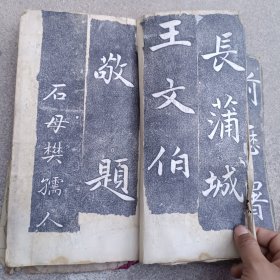 長蒲城
王文伯
敬題
石母樊孺人